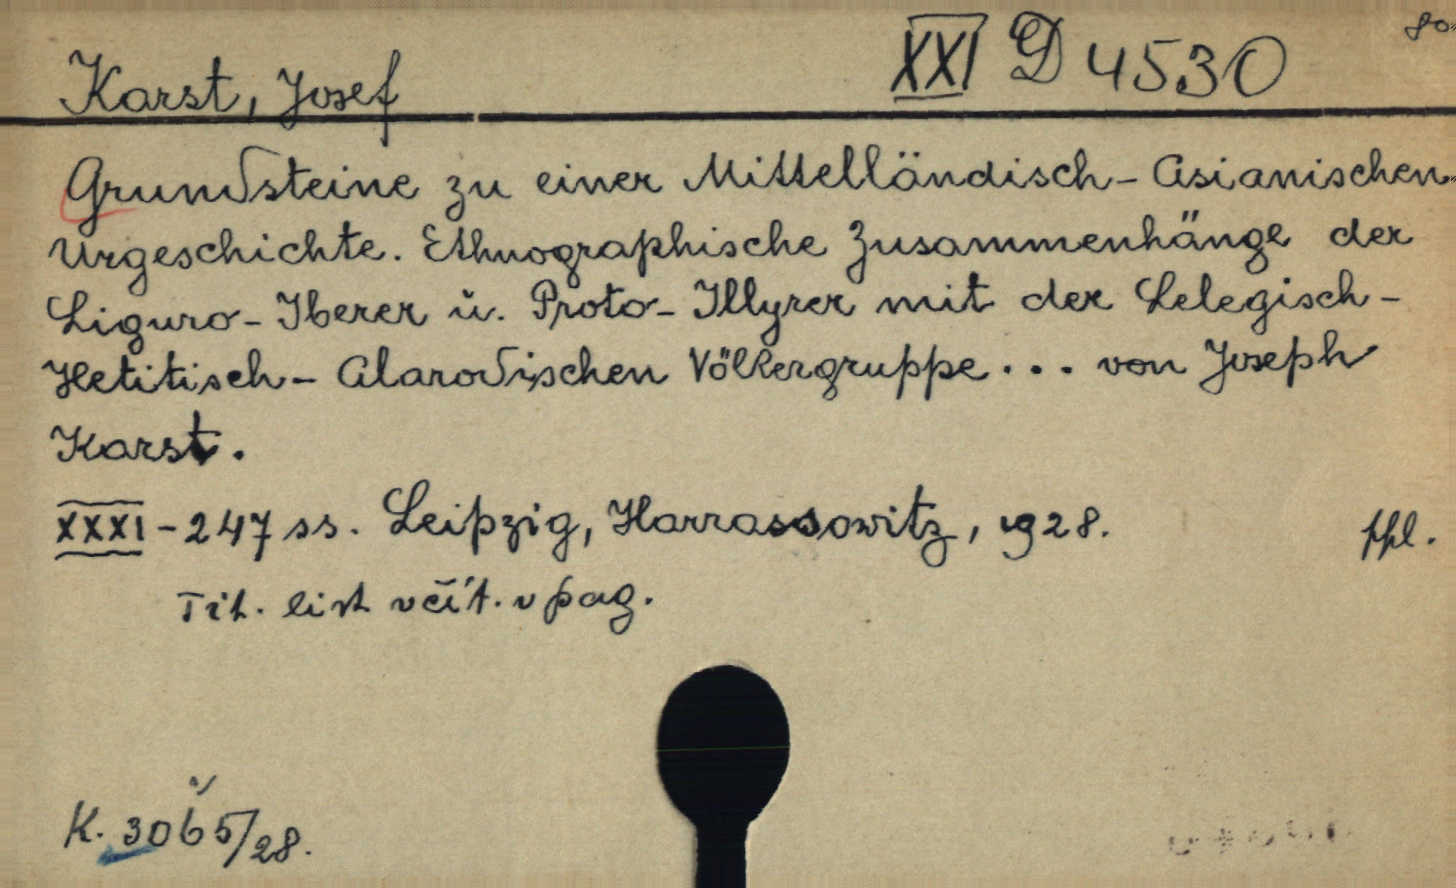 80.
XXI D 4530
Karst, Josef
Grundsteine zu einer Mittelländisch-Asianischen
Urgeschichte. Ethnographische Zusammenhänge der
Liguro-Iberer u. Proto-Illyrer mit der Lelegisch-
Hetitisch-Alarodischen Völkergruppe... von Joseph
Karst.
XXXI-247 ss. Leipzig, Harrassowitz, 1928.
ppl.
Tit. list včít. v pag.
K. 3065/28.